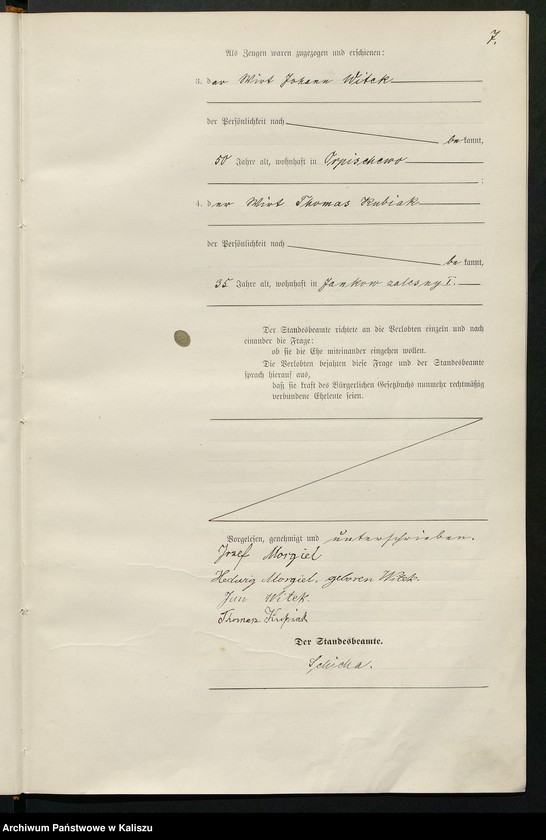 7.
Als Zeugen waren zugezogen und erschienen:
3. der Wirt Johann Witek
der Persönlichkeit nach
be kannt,
50 Jahre alt, wohnhaft in Orpischewo
;
4. der Wirt Thomas Kubiak
der Persönlichkeit nach
be kannt,
35 Jahre alt, wohnhaft in Jankow zalesny I.
Der Standesbeamte richtete an die Verlobten einzeln und nach
einander die Frage:
ob sie die Ehe miteinander eingehen wollen.
Die Verlobten bejahten diese Frage und der Standesbeamte
sprach hierauf aus,
daß sie kraft des Bürgerlichen Gesetzbuchs nunmehr rechtmäßig
verbundene Eheleute seien.
Vorgelesen, genehmigt und unterschrieben.
Jozef Morgiel
Hedwig Morgiel, geboren Witek.
Jan Witek.
Thomas
Der Standesbeamte.
Schicha.
Archiwum Państwowe w Kaliszu